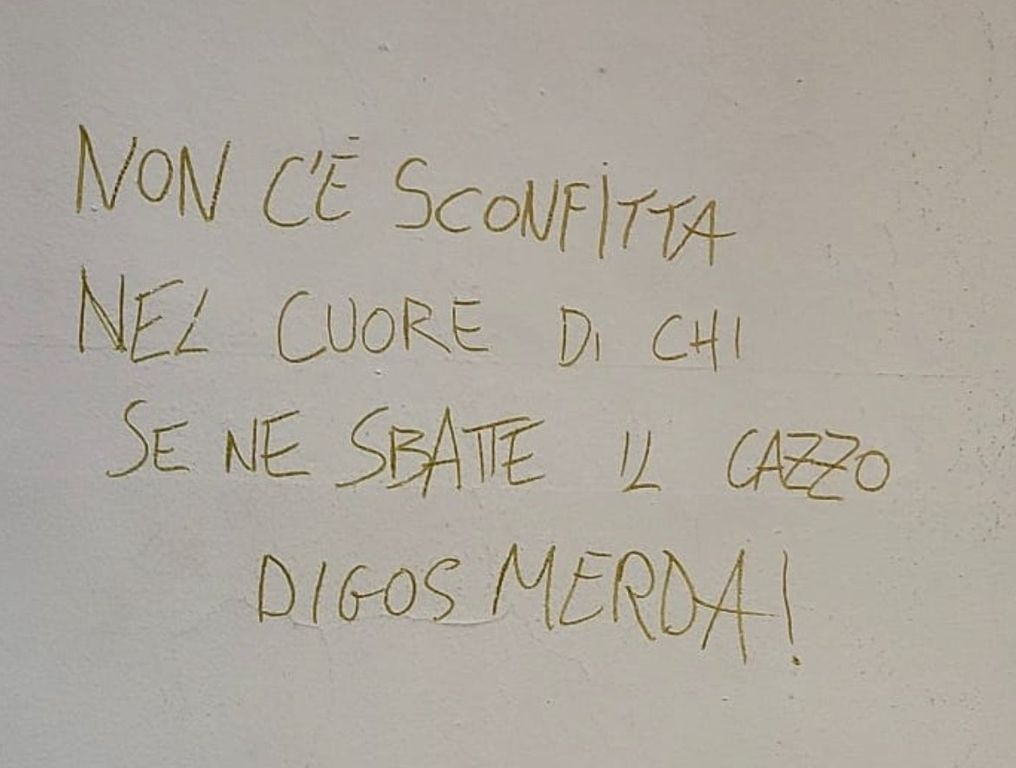 NON C'È SCONFITTA
NEL CUORE DI CHI
SE NE SBATTE IL CAZZO
DIGOS MERDA!